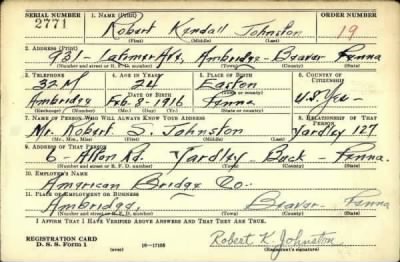 SERIAL NUMBER 1. NAME (Print) ORDER NUMBER
2771 Robert Kendall Johnston 19
(First) (Middle) (Last)
2. ADDRESS (Print)
931- Latimer Ave, Ambridge- Beaver Penna
(Number and street or R. F. D. number) (Town) (County) (State)
3. TELEPHONE 4. AGE IN YEARS 5. PLACE OF BIRTH 6. COUNTRY OF CITIZENSHIP
32M 24 Easton
DATE OF BIRTH (Town or county)
Ambridge Feb-8-1916 Penna U.S.
(Exchange) (Number) (Mo.) (Day) (Yr.) (State or country)
7. NAME OF PERSON WHO WILL ALWAYS KNOW YOUR ADDRESS 8. RELATIONSHIP OF THAT PERSON
Mr. Robert S. Johnston Yardley 127
(Mr., Mrs., Miss) (First) (Middle) (Last)
9. ADDRESS OF THAT PERSON
6- Afton Rd. Yardley Buck- Penna.
(Number and street or R. F. D. number) (Town) (County) (State)
10. EMPLOYER'S NAME
American Bridge Co.
11. PLACE OF EMPLOYMENT OR BUSINESS
Ambridge, Beaver- Penna
(Number and street or R. F. D. number) (Town) (County) (State)
I AFFIRM THAT I HAVE VERIFIED ABOVE ANSWERS AND THAT THEY ARE TRUE.
REGISTRATION CARD
D. S. S. Form 1 (over) 16-17105 Robert K. Johnston
(Registrant's signature)